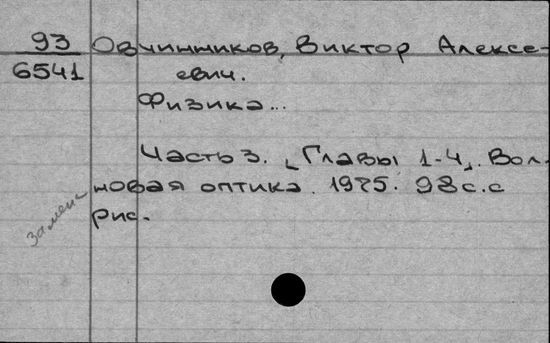 93 Овчинников, Виктор Алексе-
6541 евич.
Физика...
Часть 3. [Главы 1-4]. Вол-
новая оптика. 1975. 98 с. с
рис.
замен